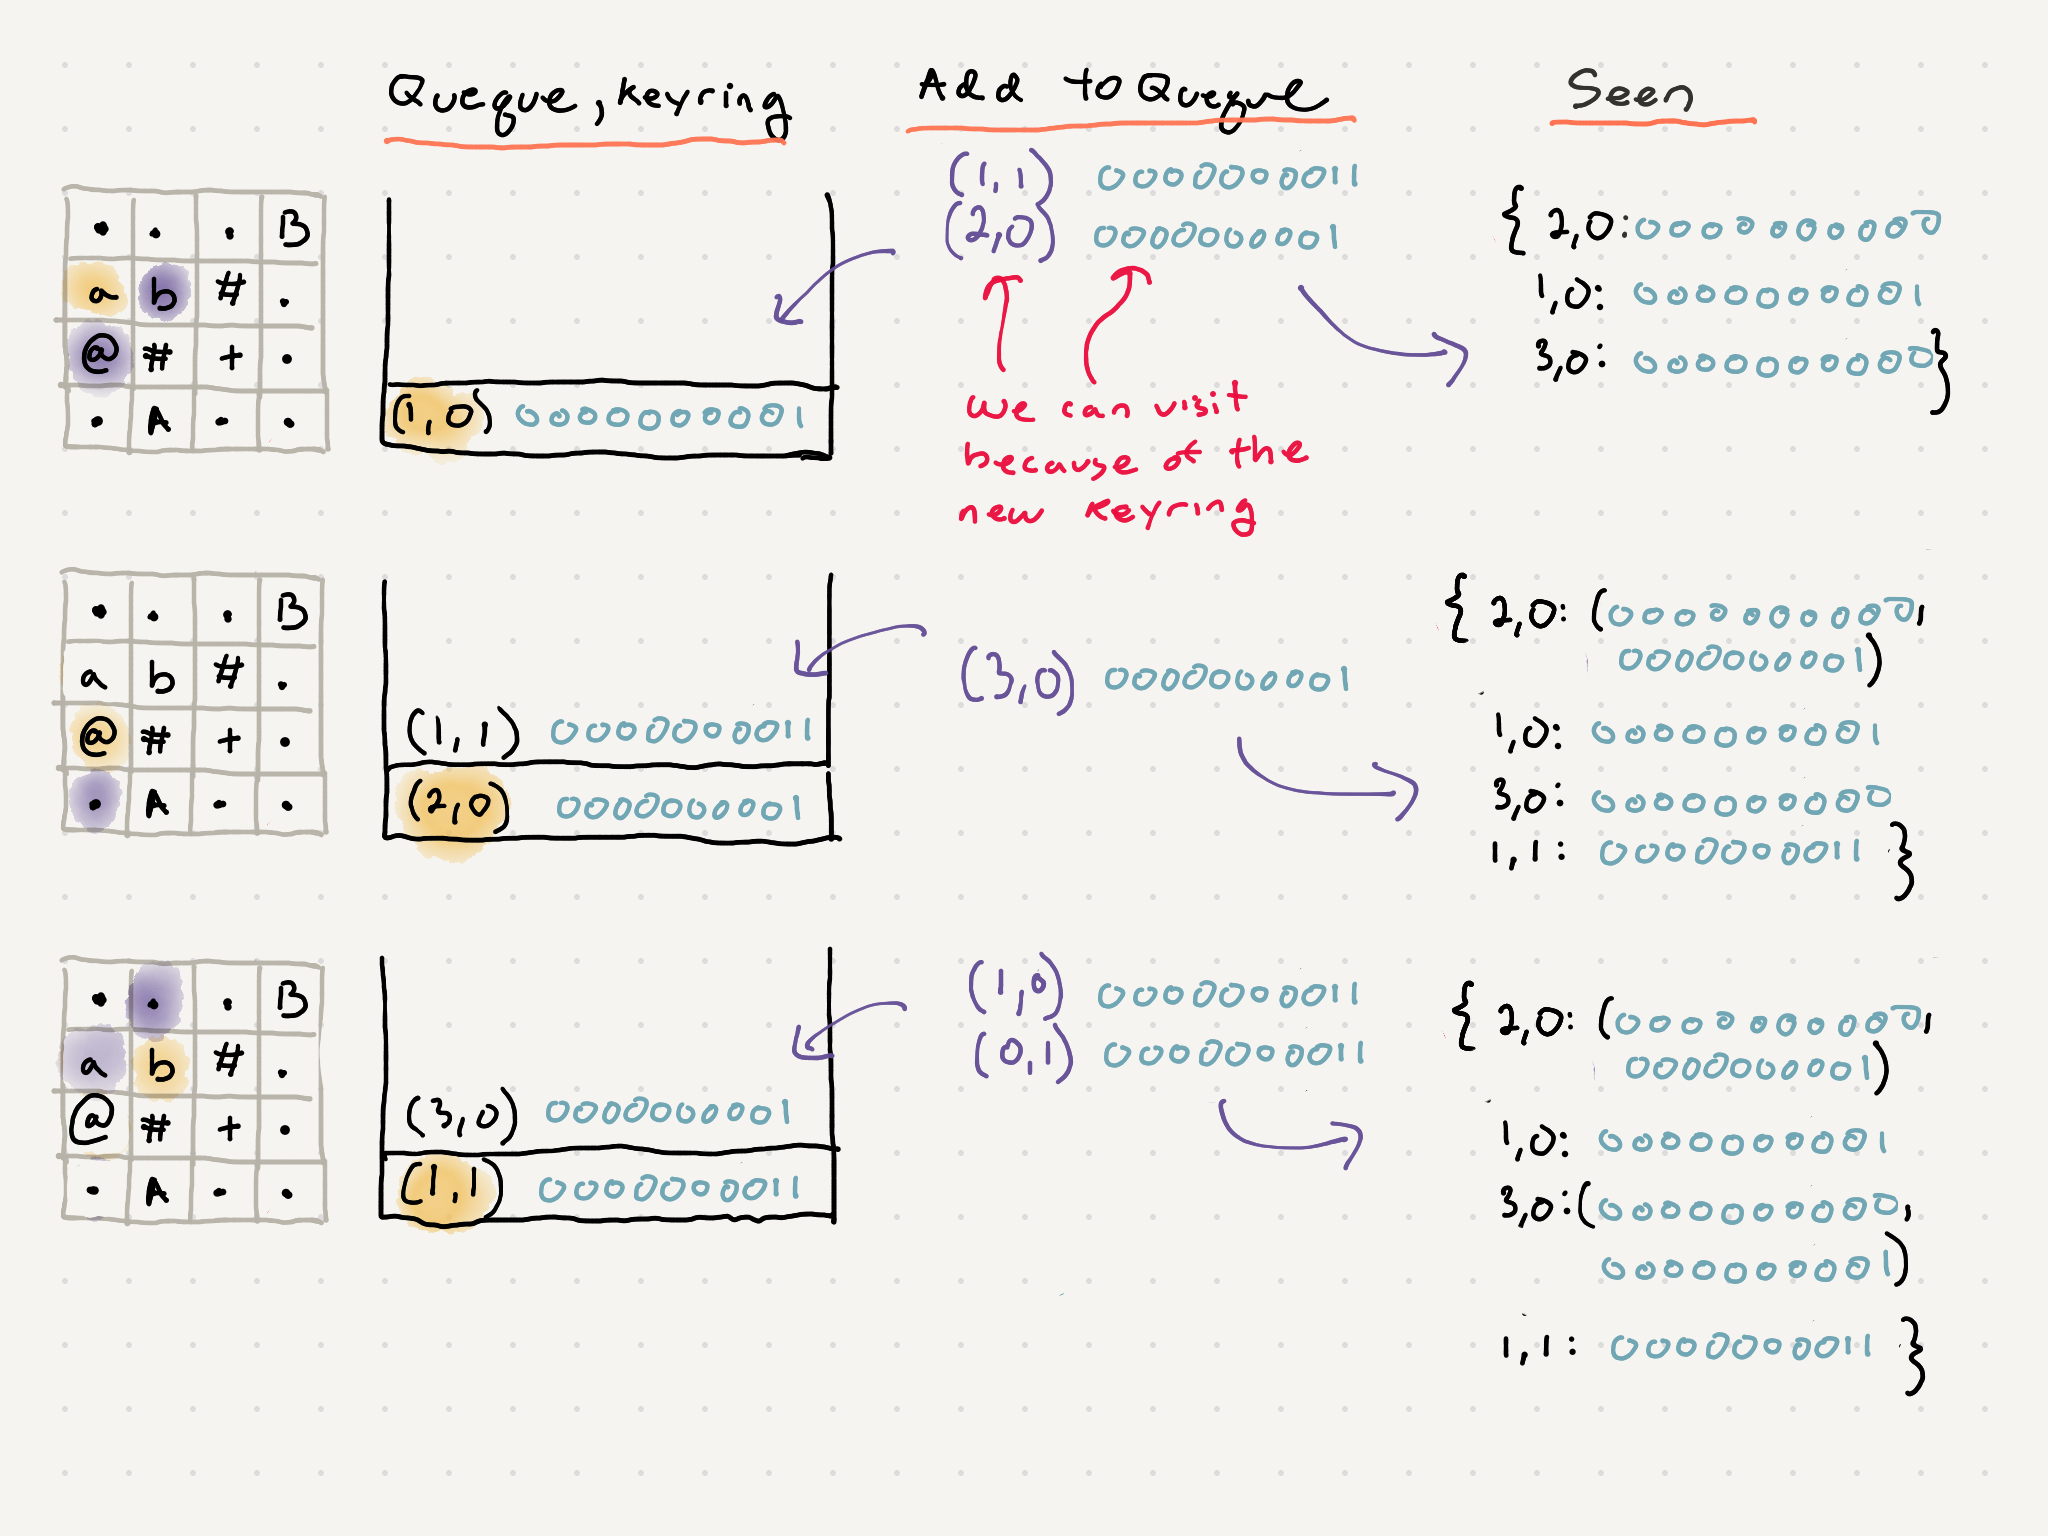 Queque, keyring
Add to Queque
Seen
. . . B
a b # .
@ # + .
. A . .
(1,0) 0000000001
(1,1) 0000000011
(2,0) 0000000001
we can visit
because of the
new keyring
{ 2,0: 0000000000
1,0: 0000000001
3,0: 0000000000}
. . . B
a b # .
@ # + .
. A . .
(1,1) 0000000011
(2,0) 0000000001
(3,0) 0000000001
{ 2,0: (0000000000,
0000000001)
1,0: 0000000001
3,0: 0000000000
1,1: 0000000011 }
. . . B
a b # .
@ # + .
. A . .
(3,0) 0000000001
(1,1) 0000000011
(1,0) 0000000011
(0,1) 0000000011
{ 2,0: (0000000000,
0000000001)
1,0: 0000000001
3,0:(0000000000,
0000000001)
1,1: 0000000011 }